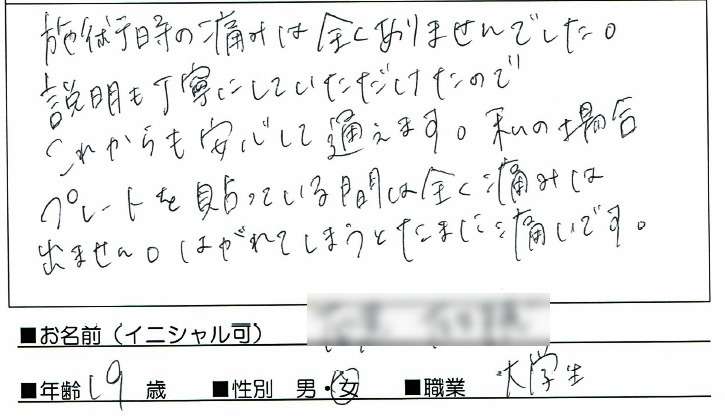 施術時の痛みは全くありませんでした。
説明も丁寧にしていただけたので
これからも安心して通えます。私の場合
プレートを貼っている間は全く痛みは
出ません。はがれてしまうとたまに痛いです。
■お名前（イニシャル可）
■年齢 19 歳 ■性別 男・女 ■職業 大学生